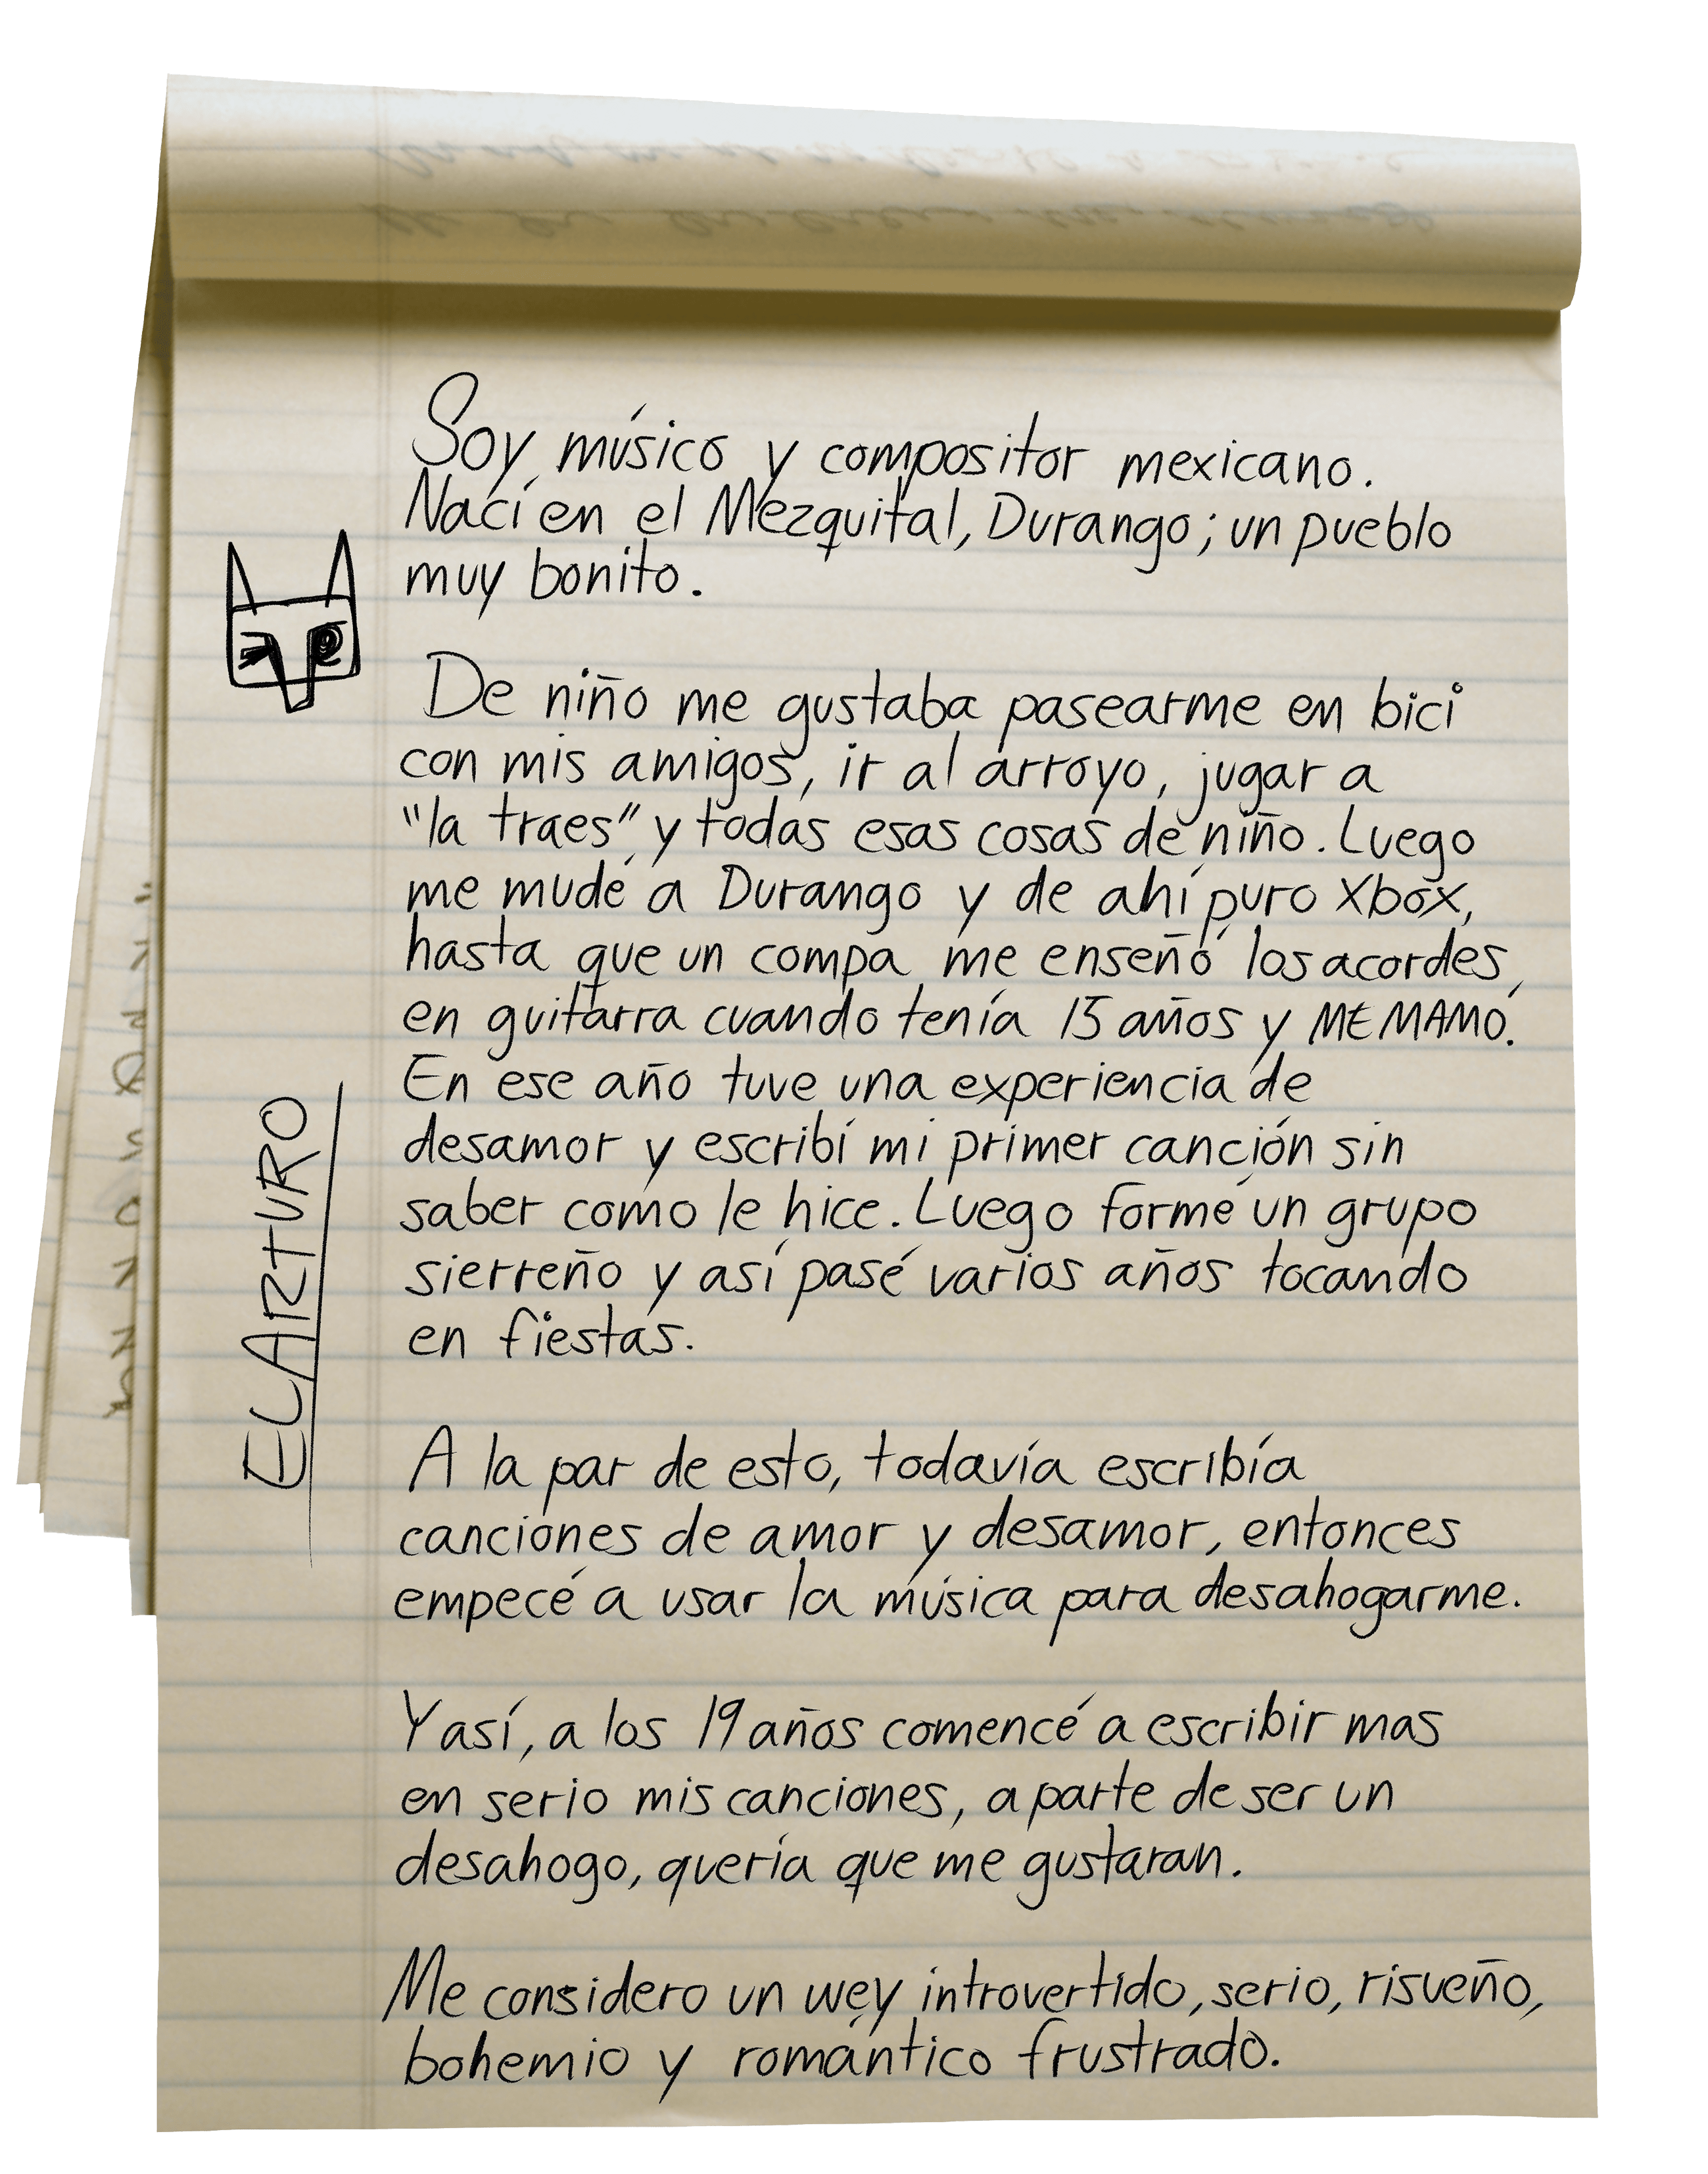 Soy músico y compositor mexicano.
Nací en el Mezquital, Durango; un pueblo
muy bonito.
De niño me gustaba pasearme en bici
con mis amigos, ir al arroyo, jugar a
"la traes" y todas esas cosas de niño. Luego
me mudé a Durango y de ahí puro Xbox,
hasta que un compa me enseñó los acordes
en guitarra cuando tenía 15 años y ME MAMÓ.
En ese año tuve una experiencia de
desamor y escribí mi primer canción sin
saber como le hice. Luego formé un grupo
sierreño y así pasé varios años tocando
en fiestas.
A la par de esto, todavía escribía
canciones de amor y desamor, entonces
empecé a usar la música para desahogarme.
Y así, a los 19 años comencé a escribir mas
en serio mis canciones, a parte de ser un
desahogo, quería que me gustaran.
Me considero un wey introvertido, serio, risueño,
bohemio y romántico frustrado.
EL ARTURO